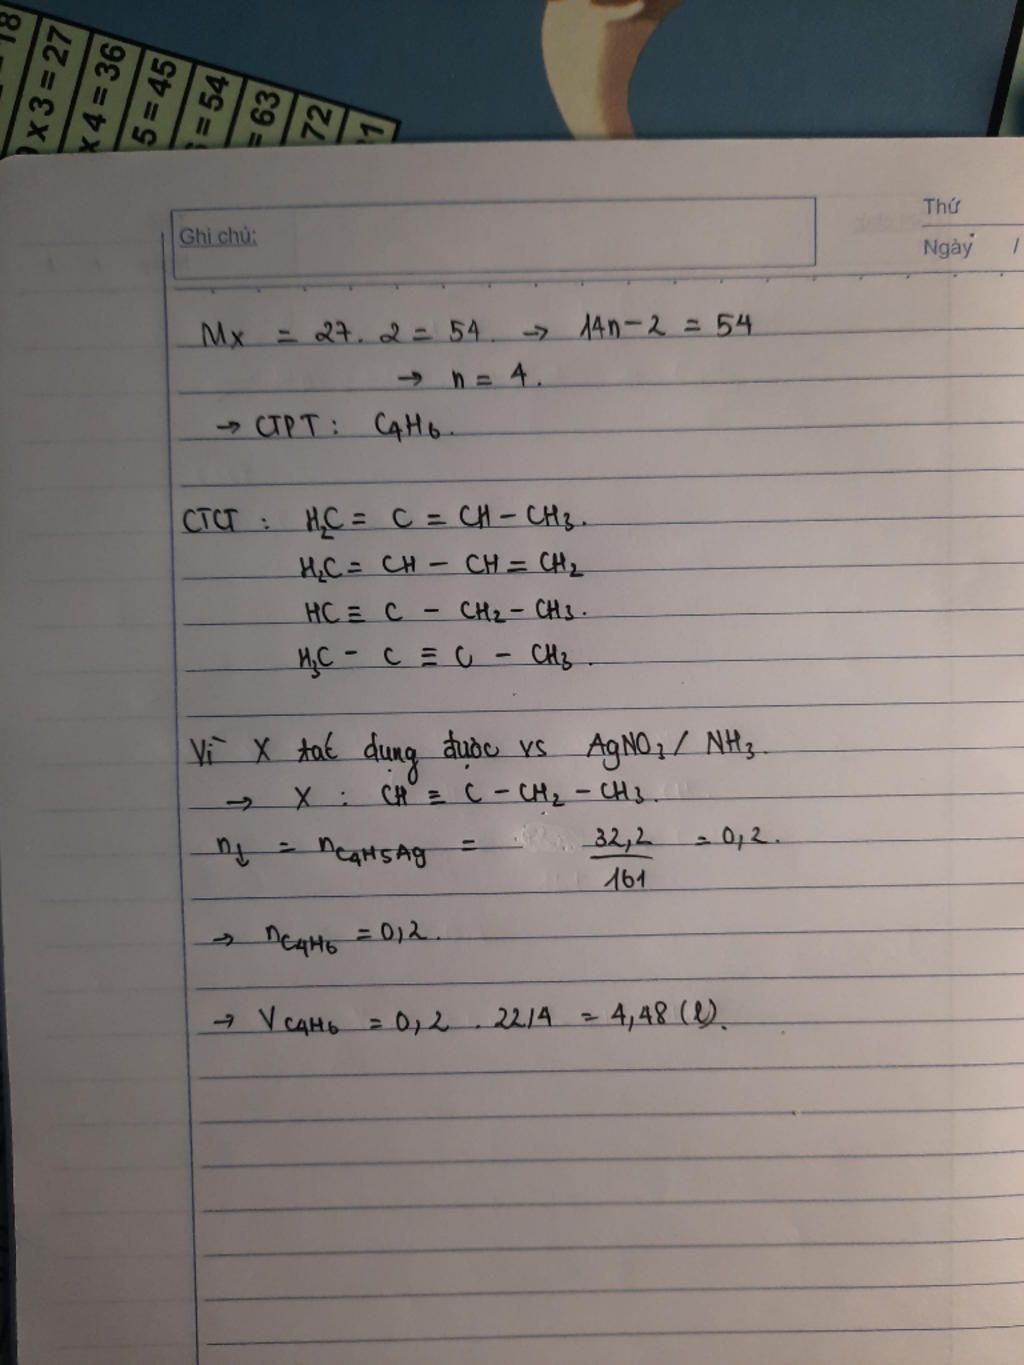 18
9 x 3 = 27
x 4 = 36
5 = 45
= 54
= 63
72
Ghi chú:
Thứ
Ngày /
Mx = 27. 2 = 54. → 14n - 2 = 54
→ n = 4.
→ CTPT : C4H6.
CTCT : H2C = C = CH - CH3.
H2C = CH - CH = CH2
HC ≡ C - CH2 - CH3.
H3C - C ≡ C - CH3.
Vì X tác dụng được vs AgNO3 / NH3.
→ X : CH ≡ C - CH2 - CH3.
n↓ = nC4H5Ag = 32,2 / 161 = 0,2.
→ nC4H6 = 0,2.
→ VC4H6 = 0,2 . 22,4 = 4,48 (l).